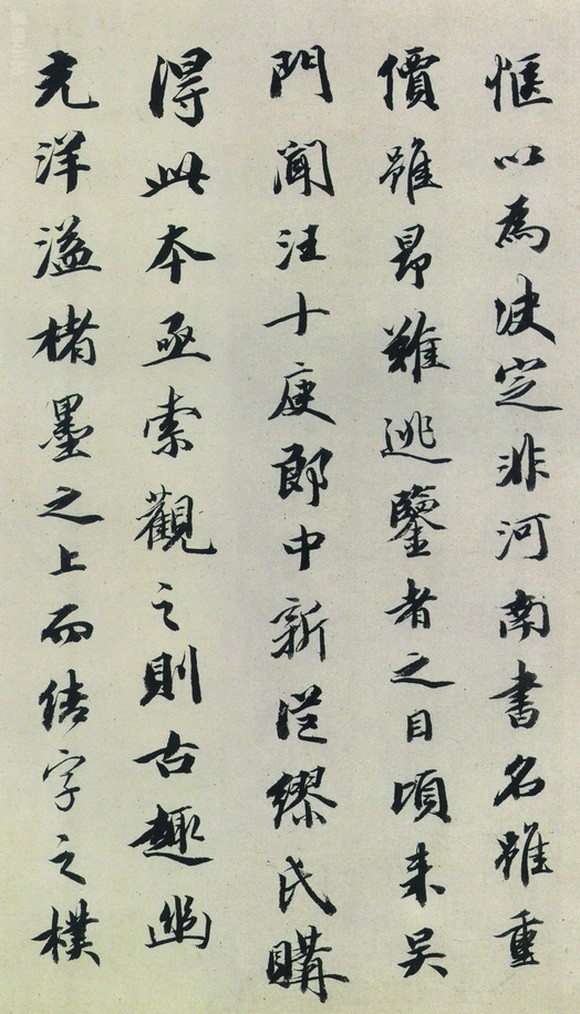 惬以為决定非河南書名雖重
價雖昂難逃鑒者之目頃来吴
門聞汪十庚郎中新從繆氏購
得此本亟索觀之則古趣幽
光洋溢楮墨之上而结字之樸